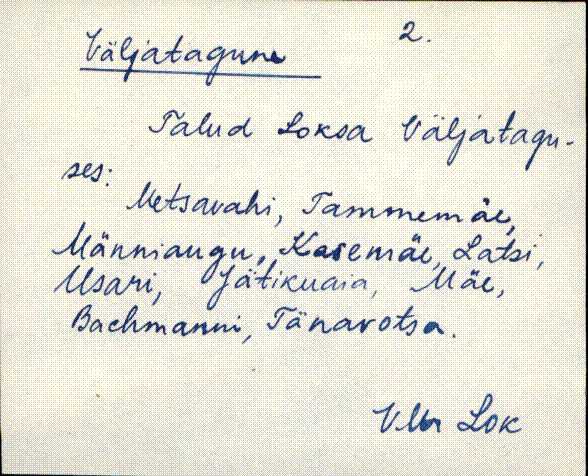 Väljatagune 2.
Talud Loksa Väljatagu-
ses:
Metsavahi, Tammemäe,
Männiaugu, Kasemäe, Latsi,
Usari, Jätikuaia, Mäe,
Bachmanni, Tänavotsa.
Lok